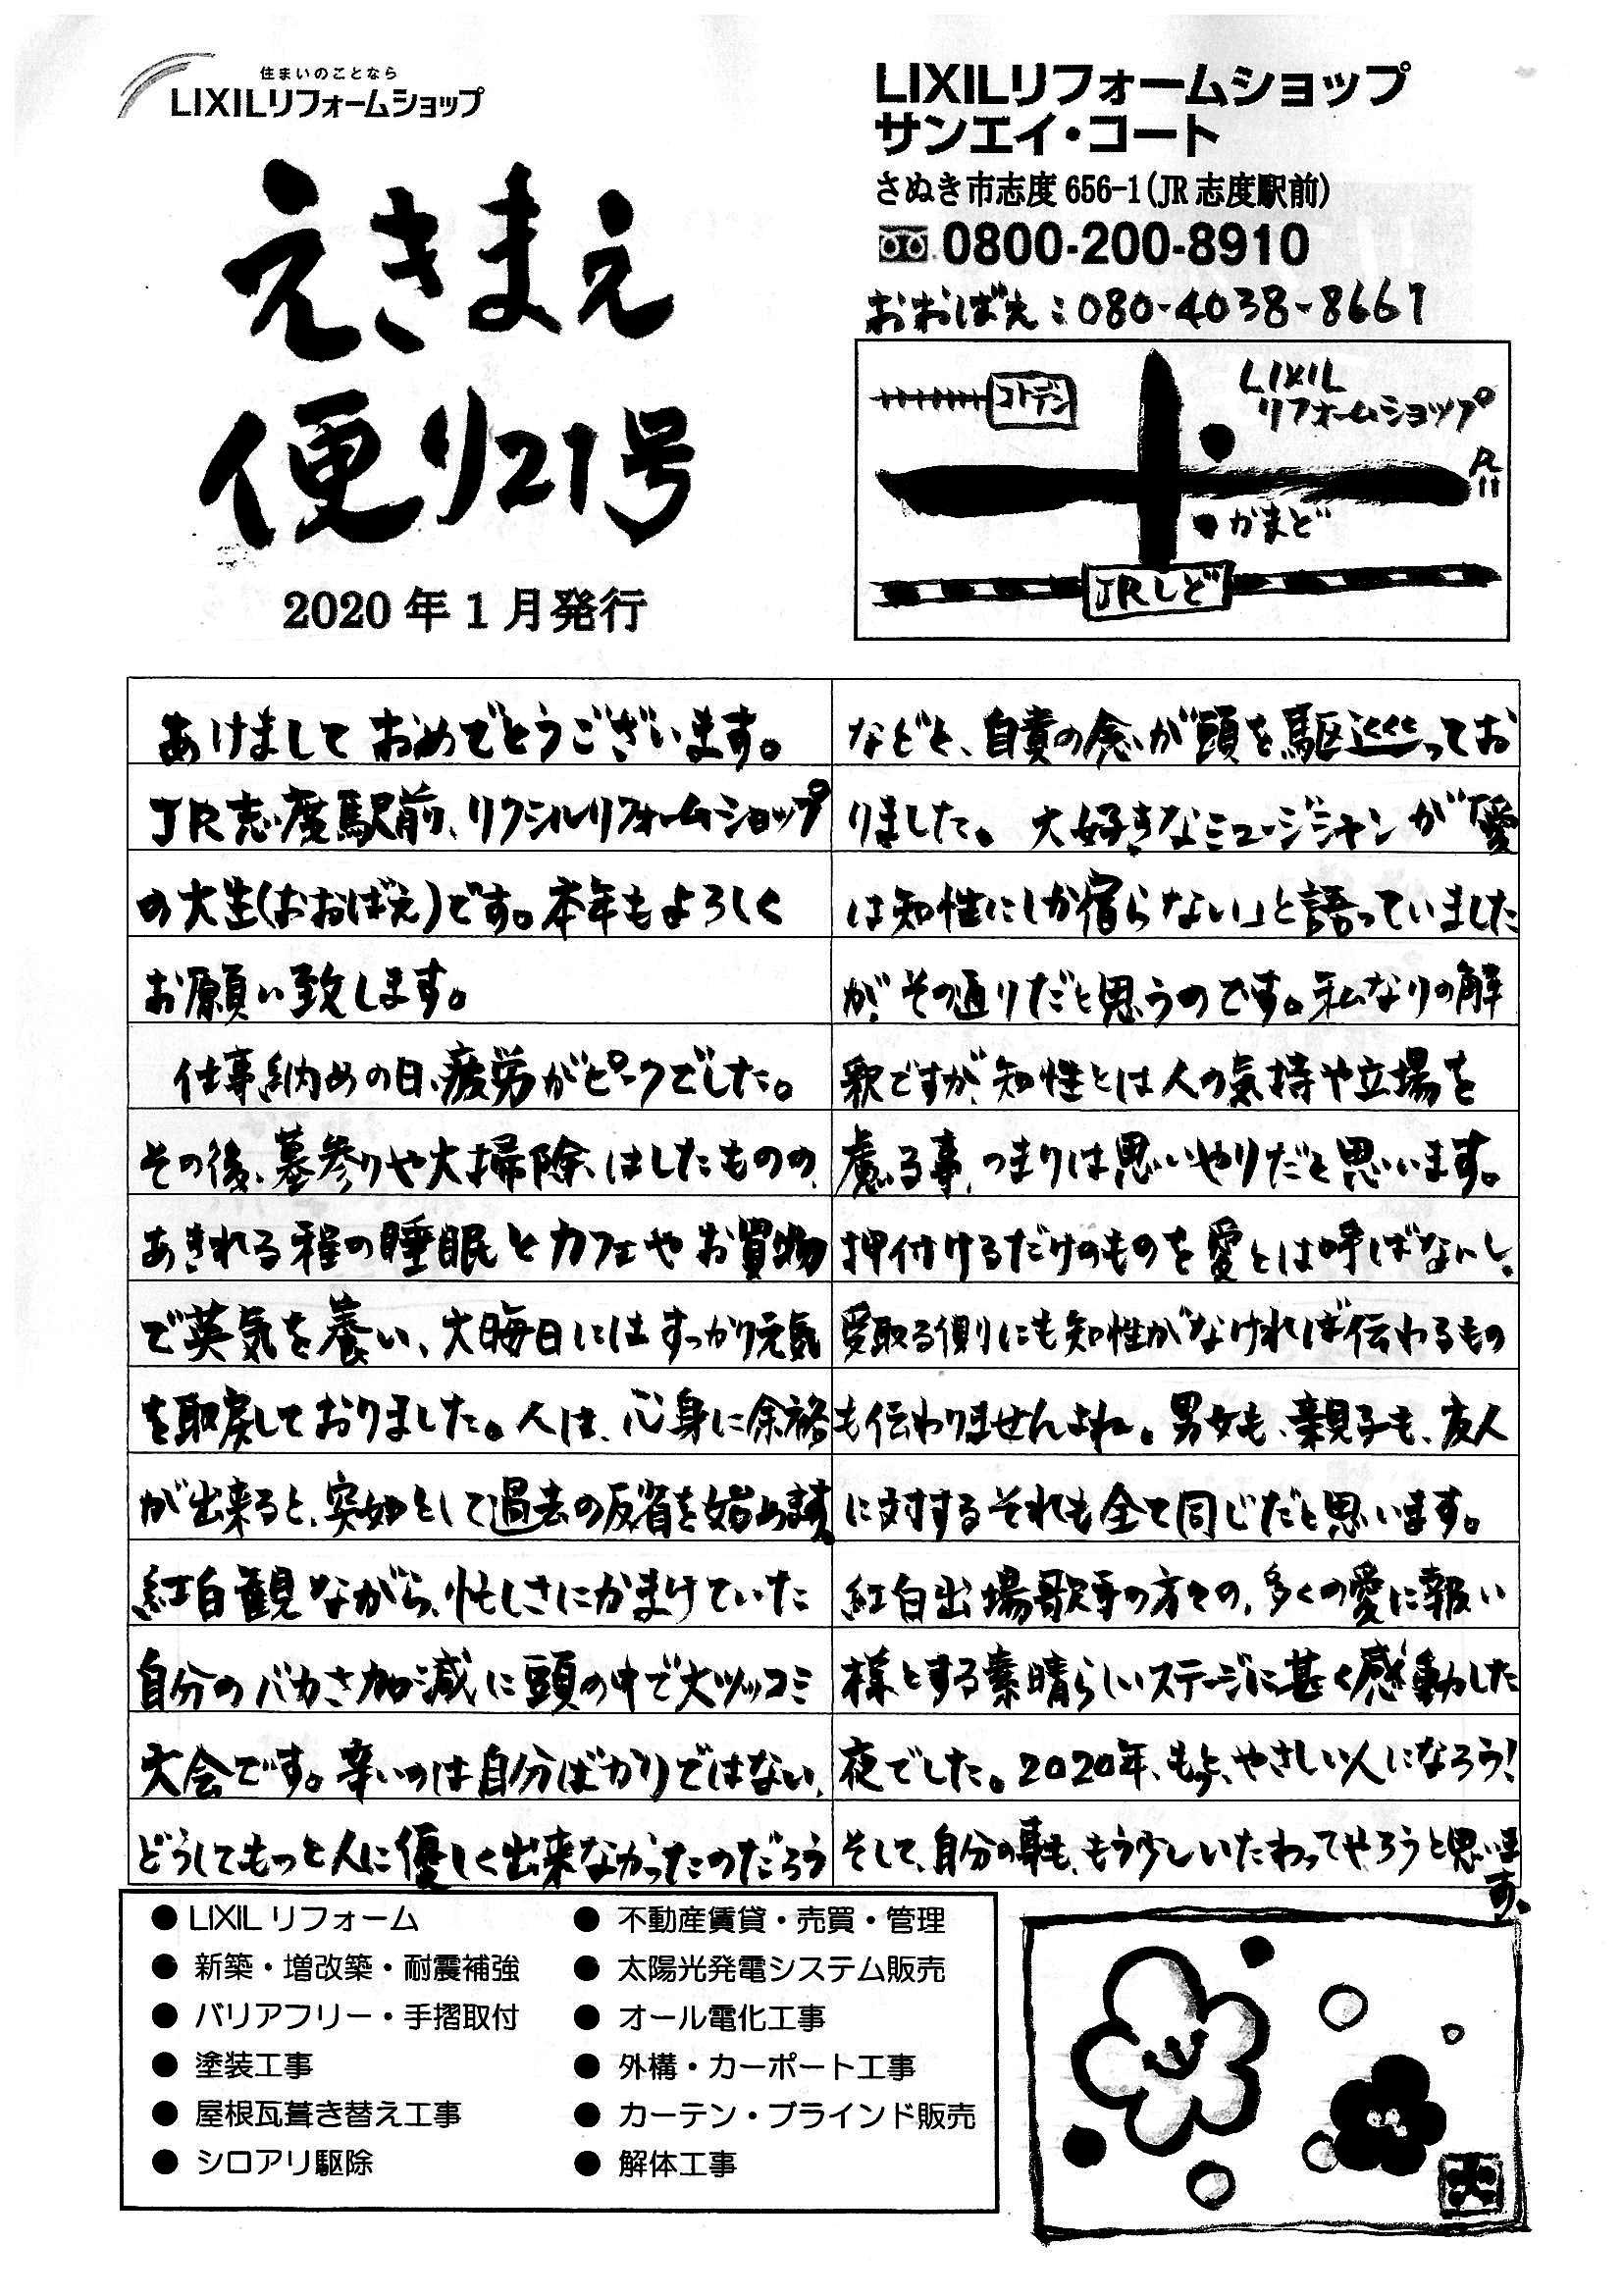 住まいのことなら
LIXILリフォームショップ
えきまえ
便り21号
2020年1月発行
LIXILリフォームショップ
サンエイ・コート
さぬき市志度656-1(JR志度駅前)
0800-200-8910
おおばえ:080-4038-8661
コトデン
LIXIL
リフォームショップ
R11
かまど
JRしど
あけましておめでとうございます。
JR志度駅前、リクシルリフォームショップ
の大生(おおばえ)です。本年もよろしく
お願い致します。
仕事納めの日、疲労がピークでした。
その後、墓参りや大掃除はしたものの、
あきれる程の睡眠とカフェやお買物
で英気を養い、大晦日にはすっかり元気
を取戻しておりました。人は、心身に余裕
が出来ると、突如として過去の反省を始めます。
紅白観ながら、忙しさにかまけていた
自分のバカさ加減に頭の中で大ツッコミ
大会です。辛いのは自分ばかりではない、
どうしてもっと人に優しく出来なかったのだろう
などと、自責の念が頭を駆巡ってお
りました。大好きなミュージシャンが「愛
は知性にしか宿らない」と語っていました
が、その通りだと思うのです。私なりの解
釈ですが、知性とは人の気持や立場を
慮る事、つまりは思いやりだと思います。
押付けるだけのものを愛とは呼ばないし、
受取る側にも知性がなければ伝わるもの
も伝わりませんよね。男女も、親子も、友人
に対するそれも全て同じだと思います。
紅白出場歌手の方々の、多くの愛に報い
様とする素晴らしいステージに甚く感動した
夜でした。2020年、もっと、やさしい人になろう!
そして、自分の事も、もう少しいたわってやろうと思いま
す。
● LIXILリフォーム
● 新築・増改築・耐震補強
● バリアフリー・手摺取付
● 塗装工事
● 屋根瓦葺き替え工事
● シロアリ駆除
● 不動産賃貸・売買・管理
● 太陽光発電システム販売
● オール電化工事
● 外構・カーポート工事
● カーテン・ブラインド販売
● 解体工事